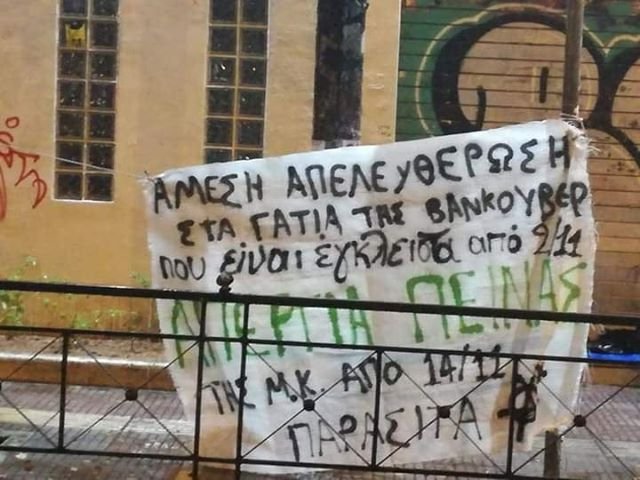 ΑΜΕΣΗ ΑΠΕΛΕΥΘΕΡΩΣΗ
ΣΤΑ ΓΑΤΙΑ ΤΗΣ ΒΑΝΚΟΥΒΕΡ
που είναι έγκλειστα από 2/11
ΑΠΕΡΓΙΑ ΠΕΙΝΑΣ
ΤΗΣ Μ.Κ. ΑΠΟ 14/11
ΠΑΡΑΣΙΤΑ